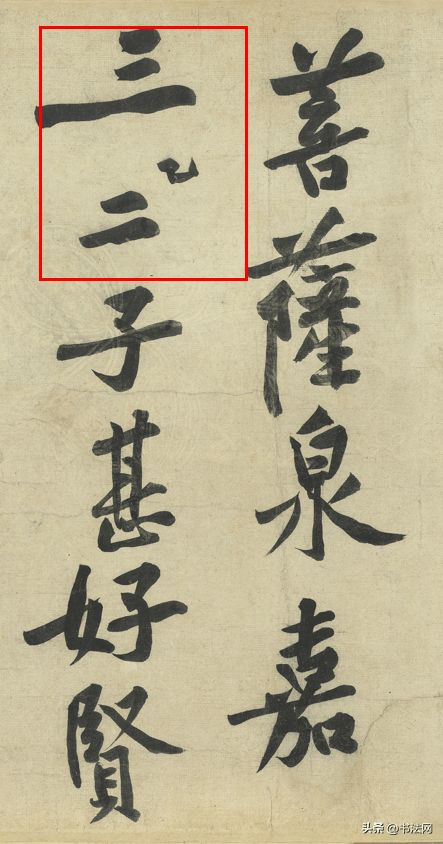 菩薩泉嘉
三二子甚好賢
头条 @书法网